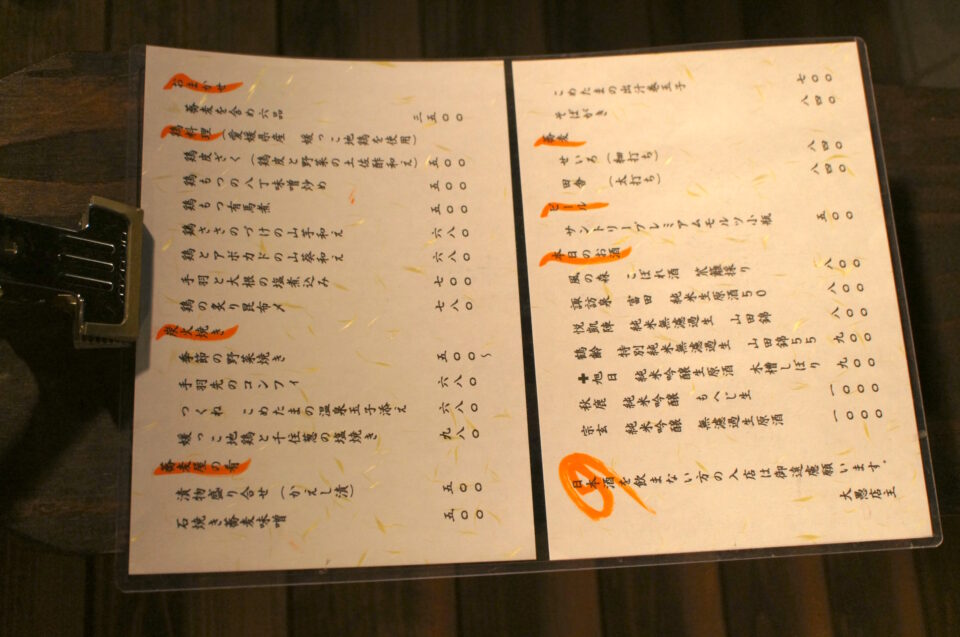 おまかせ
蕎麦を含め六品 三五〇〇
鶏料理（愛媛県産 媛っこ地鶏を使用）
鶏皮ざく（鶏皮と野菜の土佐酢和え） 五〇〇
鶏もつの八丁味噌炒め 五〇〇
鶏もつ有馬煮 五〇〇
鶏ささのづけの山芋和え 六八〇
鶏とアボカドの山葵和え 六八〇
手羽と大根の塩煮込み 七〇〇
鶏の炙り昆布〆 七八〇
炭火焼き
季節の野菜焼き 五〇〇〜
手羽先のコンフィ 六八〇
つくね こめたまの温泉玉子添え 六八〇
媛っこ地鶏と千住葱の塩焼き 九八〇
蕎麦屋の肴
漬物盛り合せ（かえし漬） 五〇〇
石焼き蕎麦味噌 五〇〇
こめたまの出汁巻玉子 七〇〇
そばがき 八四〇
蕎麦
せいろ（細打ち） 八四〇
田舎（太打ち） 八四〇
ビール
サントリープレミアムモルツ小瓶 五〇〇
本日のお酒
風の森 こぼれ酒 笊籬採り 八〇〇
諏訪泉 富田 純米生原酒50 八〇〇
悦凱陣 純米無濾過生 山田錦 八〇〇
鶴齢 特別純米無濾過生 山田錦55 九〇〇
十旭日 純米吟醸生原酒 木槽しぼり 九〇〇
秋鹿 純米吟醸 もへじ生 一〇〇〇
宗玄 純米吟醸 無濾過生原酒 一〇〇〇
日本酒を飲まない方の入店は御遠慮願います。
大愚店主